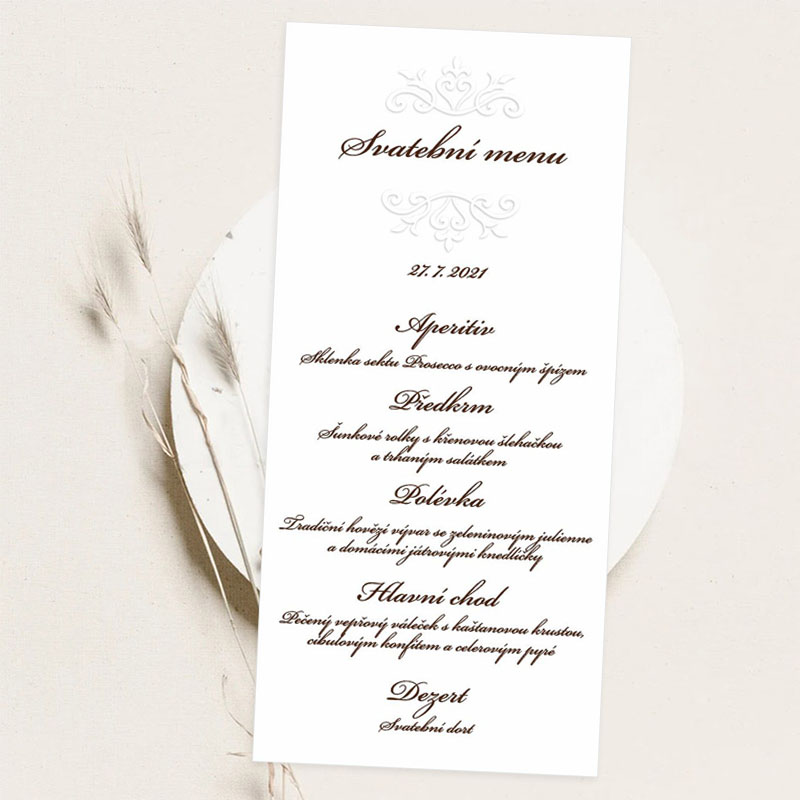 Svatební menu
27. 7. 2021
Aperitiv
Sklenka sektu Prosecco s ovocným špízem
Předkrm
Šunkové rolky s křenovou šlehačkou
a trhaným salátkem
Polévka
Tradiční hovězí vývar se zeleninovým julienne
a domácími játrovými knedlíčky
Hlavní chod
Pečený vepřový váleček s kaštanovou krustou,
cibulovým konfitem a celerovým pyré
Dezert
Svatební dort